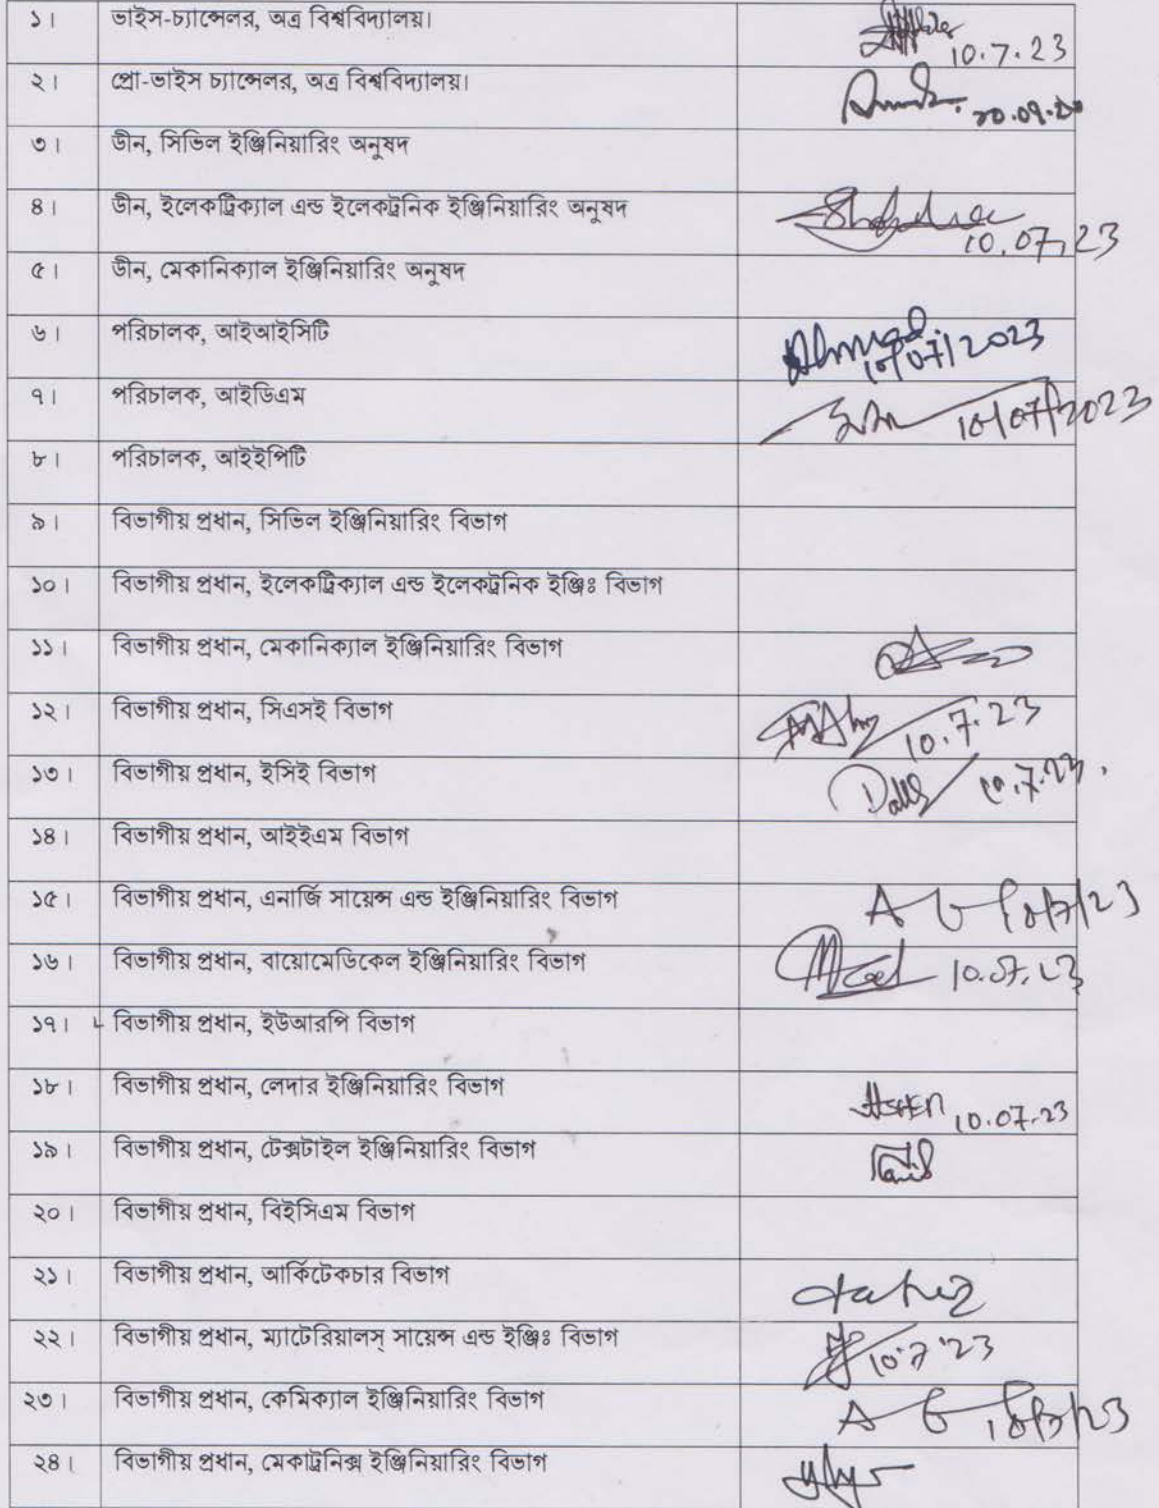 ১। ভাইস-চ্যান্সেলর, অত্র বিশ্ববিদ্যালয়। 10.7.23
২। প্রো-ভাইস চ্যান্সেলর, অত্র বিশ্ববিদ্যালয়।
৩। ডীন, সিভিল ইঞ্জিনিয়ারিং অনুষদ
৪। ডীন, ইলেকট্রিক্যাল এন্ড ইলেকট্রনিক ইঞ্জিনিয়ারিং অনুষদ 10.07.23
৫। ডীন, মেকানিক্যাল ইঞ্জিনিয়ারিং অনুষদ
৬। পরিচালক, আইআইসিটি 10/07/2023
৭। পরিচালক, আইডিএম 10/07/2023
৮। পরিচালক, আইইপিটি
৯। বিভাগীয় প্রধান, সিভিল ইঞ্জিনিয়ারিং বিভাগ
১০। বিভাগীয় প্রধান, ইলেকট্রিক্যাল এন্ড ইলেকট্রনিক ইঞ্জিঃ বিভাগ
১১। বিভাগীয় প্রধান, মেকানিক্যাল ইঞ্জিনিয়ারিং বিভাগ
১২। বিভাগীয় প্রধান, সিএসই বিভাগ 10.7.23
১৩। বিভাগীয় প্রধান, ইসিই বিভাগ 10.7.23.
১৪। বিভাগীয় প্রধান, আইইএম বিভাগ
১৫। বিভাগীয় প্রধান, এনার্জি সায়েন্স এন্ড ইঞ্জিনিয়ারিং বিভাগ 10/7/23
১৬। বিভাগীয় প্রধান, বায়োমেডিকেল ইঞ্জিনিয়ারিং বিভাগ 10.07.23
১৭। বিভাগীয় প্রধান, ইউআরপি বিভাগ
১৮। বিভাগীয় প্রধান, লেদার ইঞ্জিনিয়ারিং বিভাগ 10.07.23
১৯। বিভাগীয় প্রধান, টেক্সটাইল ইঞ্জিনিয়ারিং বিভাগ
২০। বিভাগীয় প্রধান, বিইসিএম বিভাগ
২১। বিভাগীয় প্রধান, আর্কিটেকচার বিভাগ
২২। বিভাগীয় প্রধান, ম্যাটেরিয়ালস্ সায়েন্স এন্ড ইঞ্জিঃ বিভাগ 10.7.23
২৩। বিভাগীয় প্রধান, কেমিক্যাল ইঞ্জিনিয়ারিং বিভাগ 10/7/23
২৪। বিভাগীয় প্রধান, মেকাট্রনিক্স ইঞ্জিনিয়ারিং বিভাগ